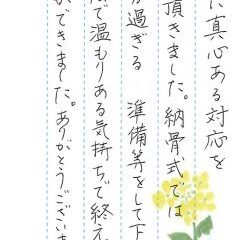 に真心ある対応を
頂きました。納骨式では
が過ぎる 準備等をして下
で温もりある気持ちで終え
できました。ありがとうござい